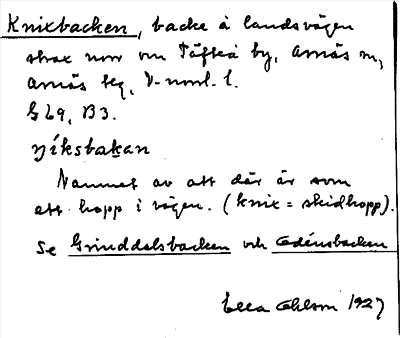 Knixbacken, backe å landsvägen
strax norr om Täfteå by, Arnäs sn,
Arnäs tg, V-norrl. l.
G 69, B3.
Namnet av att där är som
ett hopp i vägen. (knix = skidhopp).
Se Grinddalsbacken och
Ella Ohlson 1927